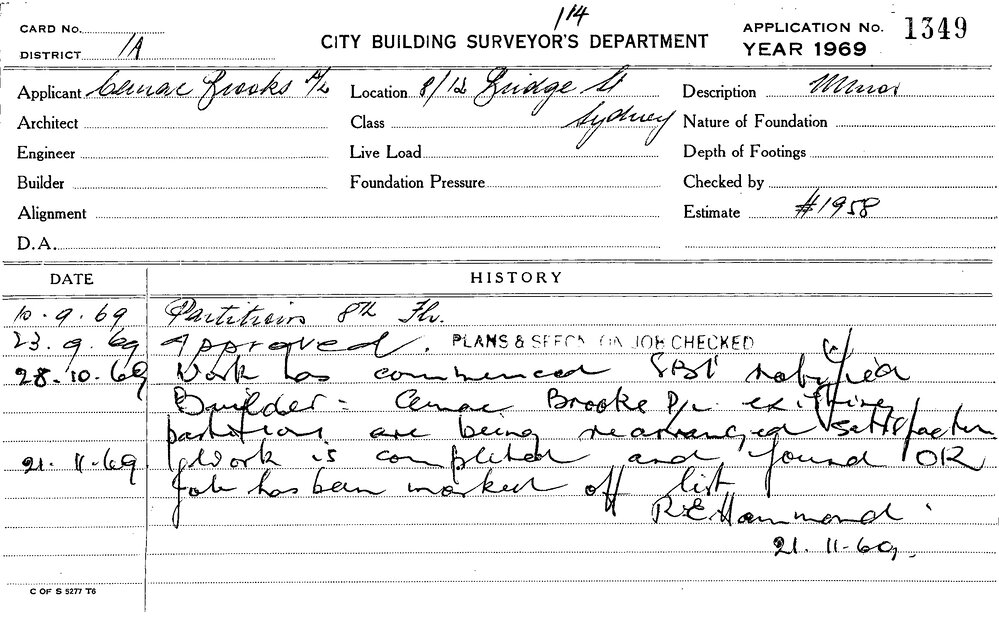 1/14
CARD No.
DISTRICT 1A
CITY BUILDING SURVEYOR'S DEPARTMENT
APPLICATION No. 1349
YEAR 1969
Applicant Cemac Brooks P/L Location 8/12 Bridge St Description Minor
Architect Class Sydney Nature of Foundation
Engineer Live Load Depth of Footings
Builder Foundation Pressure Checked by
Alignment Estimate #1958
D.A.
DATE HISTORY
10.9.69 Partitions 8th Flr.
23.9.69 Approved. PLANS & SPECN ON JOB CHECKED
28.10.69 Work has commenced notified
Builder - Cemac Brooke P/L existing
partitions are being rearranged
21.11.69 Work is completed and found OK
Job has been marked off list
R.E.Hammond
21.11.69.
C OF S 5277 T6